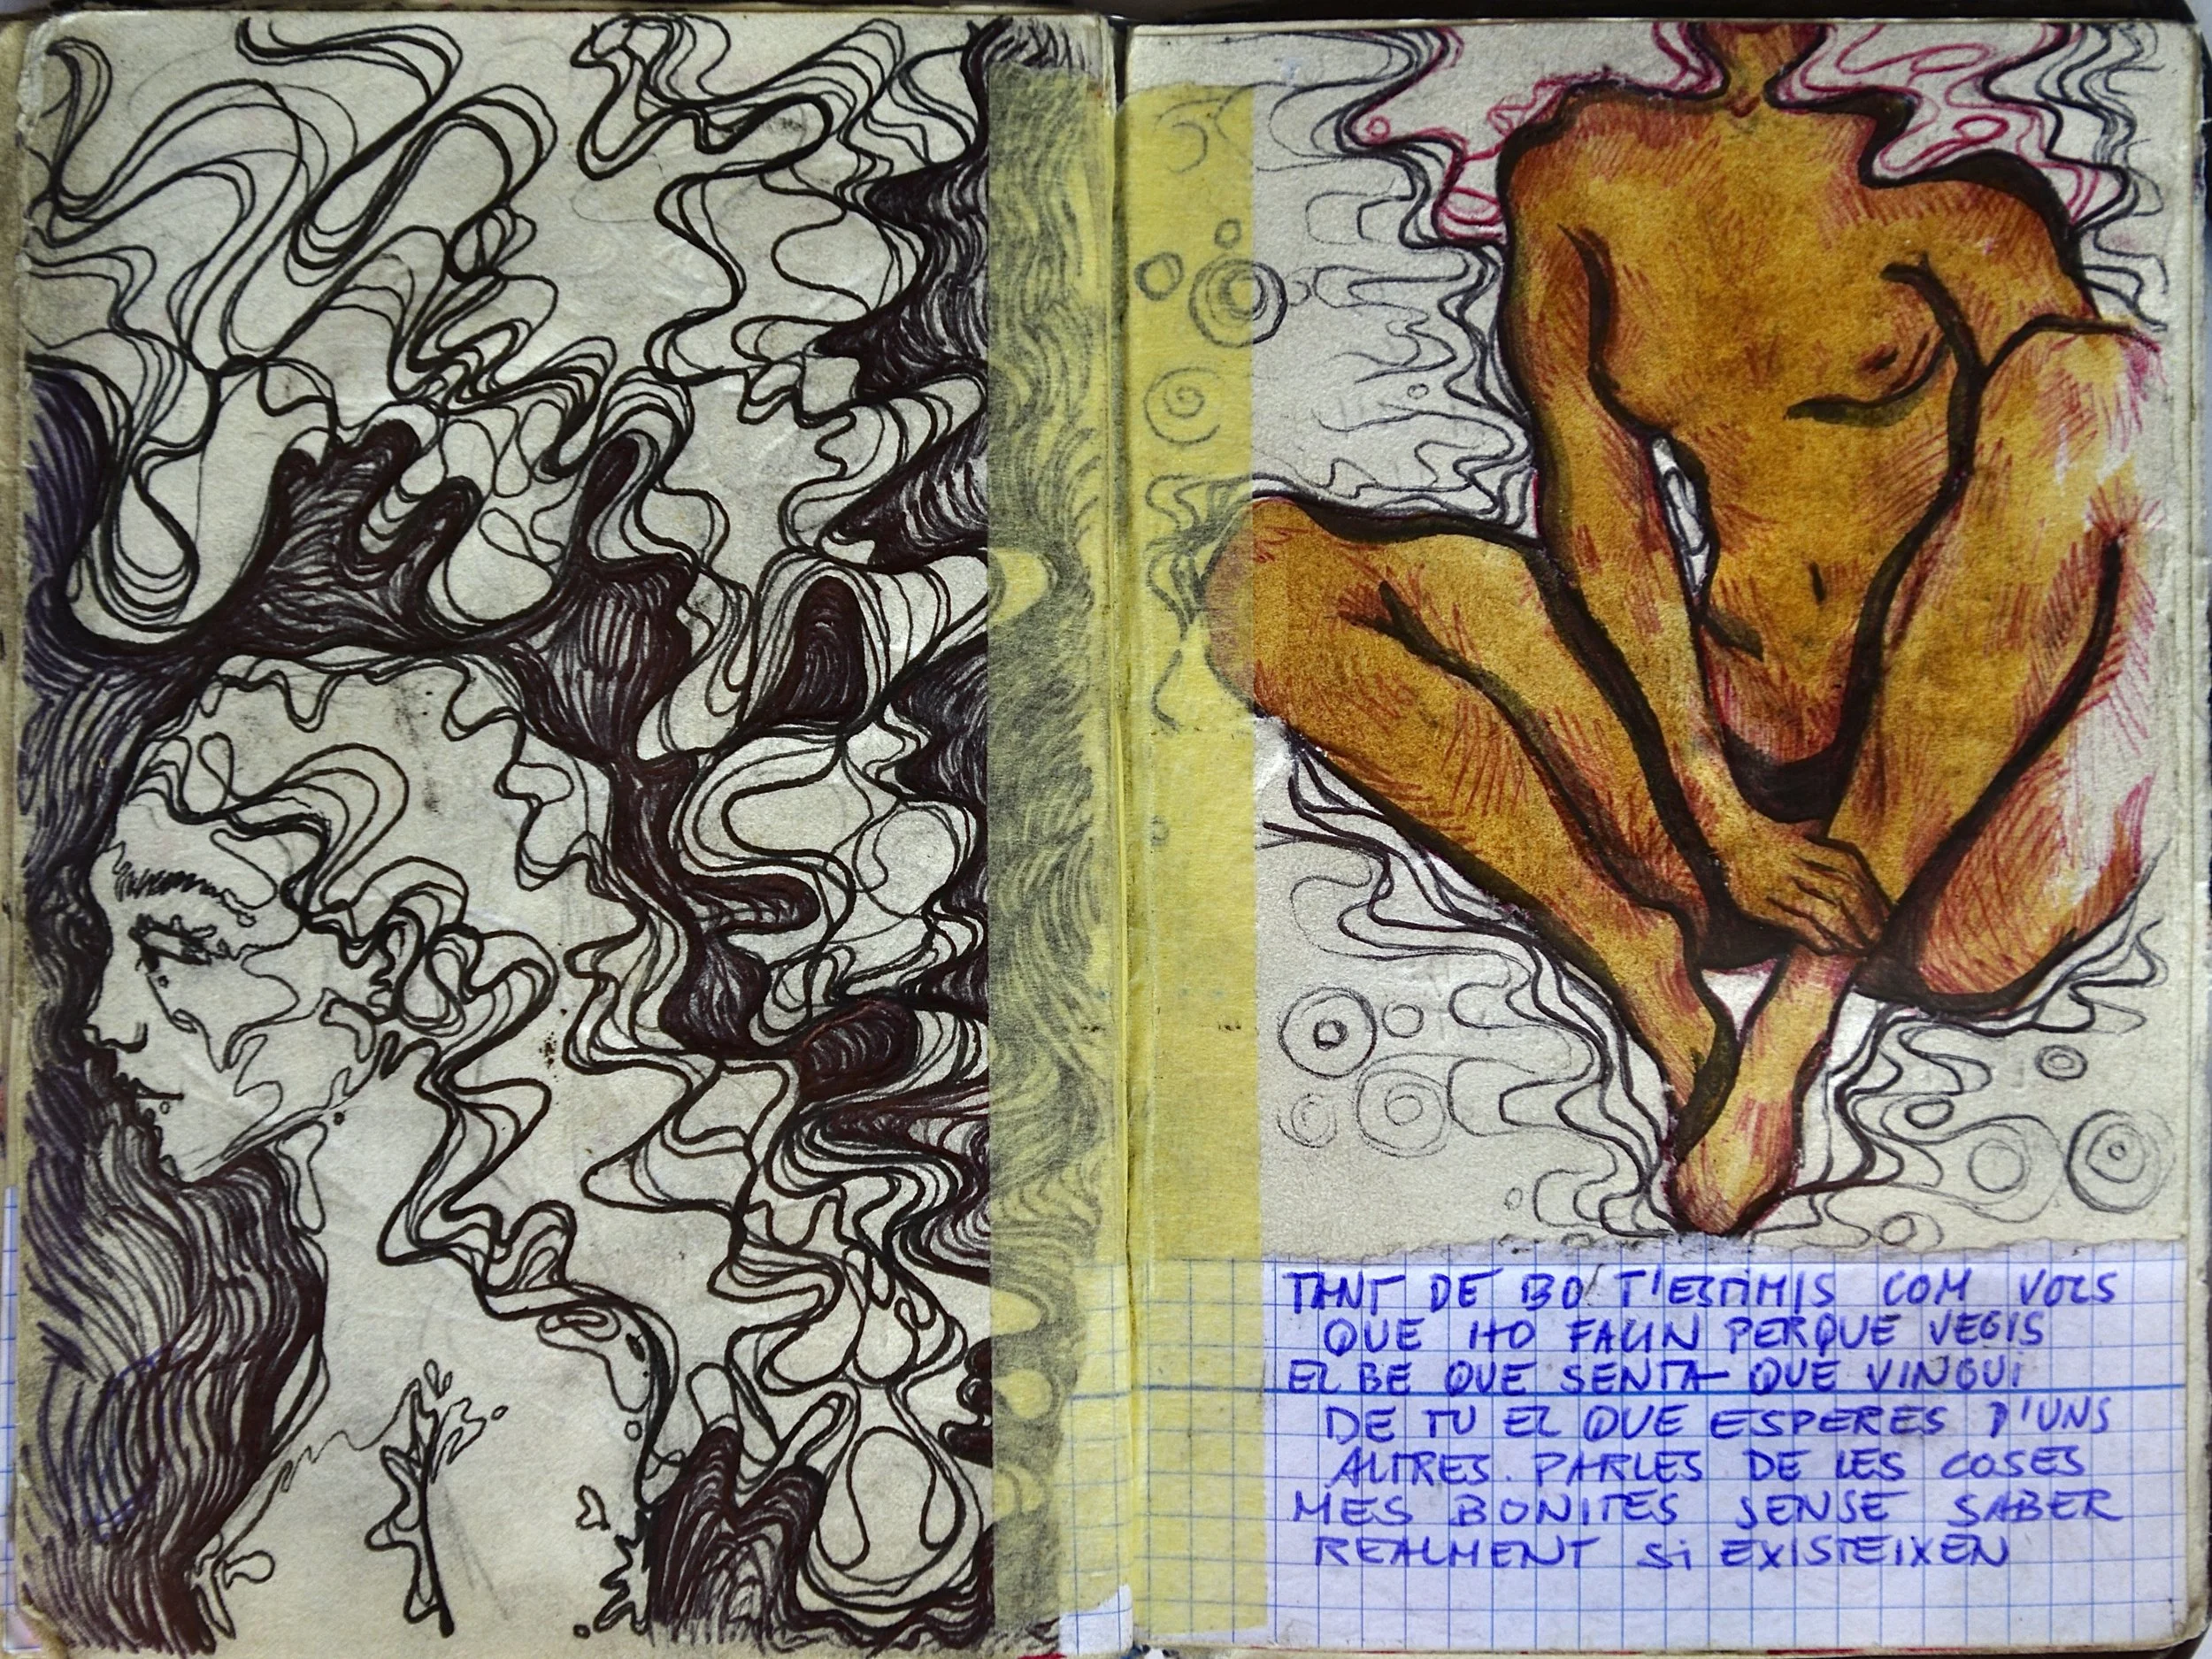 TANT DE BO T'ESTIMIS COM VOLS
QUE HO FAUN PERQUE VEGIS
EL BE QUE SENTA QUE VINGUI
DE TU EL QUE ESPERES D'UNS
ALTRES. PARLES DE LES COSES
MES BONITES SENSE SABER
REALMENT Si EXISTEIXEN